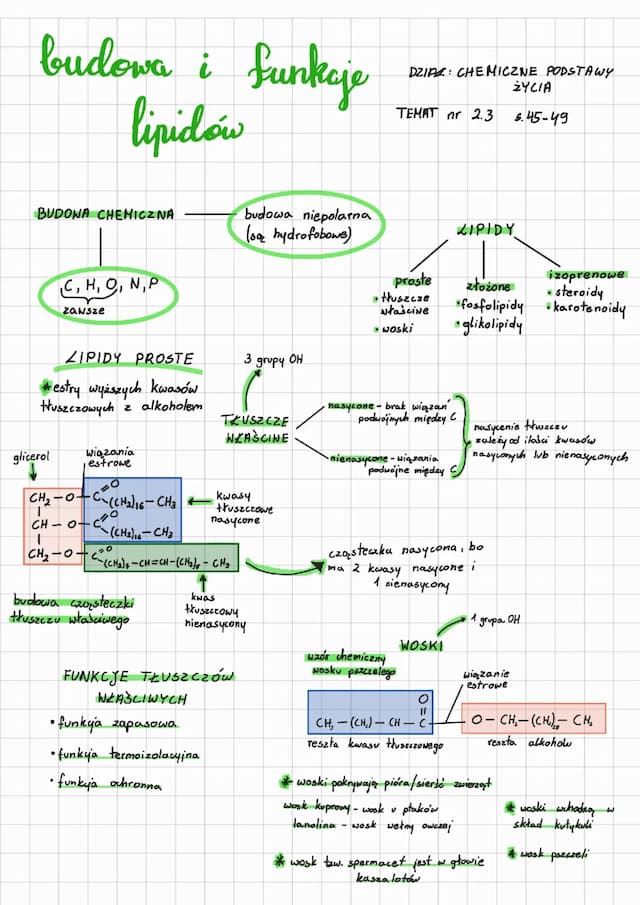 budowa i funkcje
lipidów
DZIAŁ: CHEMICZNE PODSTAWY
ŻYCIA
TEMAT nr 2.3 s.45-49
BUDOWA CHEMICZNA
budowa niepolarna
(są hydrofobowe)
C, H, O, N, P
zawsze
LIPIDY
proste
• tłuszcze
właściwe
• woski
złożone
• fosfolipidy
• glikolipidy
izoprenowe
• steroidy
• karotenoidy
LIPIDY PROSTE
* estry wyższych kwasów
tłuszczowych z alkoholem
3 grupy OH
TŁUSZCZE
WŁAŚCIWE
nasycone - brak wiązań
podwójnych między C
nienasycone - wiązania
podwójne między C
nasycenie tłuszczu
zależy od ilości kwasów
nasyconych lub nienasyconych
glicerol
wiązania
estrowe
CH2 - O - C =O (CH2)16 - CH3
CH - O - C =O (CH2)16 - CH3
CH2 - O - C =O (CH2)7 - CH=CH-(CH2)7 - CH3
kwasy
tłuszczowe
nasycone
kwas
tłuszczowy
nienasycony
cząsteczka nasycona, bo
ma 2 kwasy nasycone i
1 nienasycony
budowa cząsteczki
tłuszczu właściwego
FUNKCJE TŁUSZCZÓW
WŁAŚCIWYCH
• funkcja zapasowa
• funkcja termoizolacyjna
• funkcja ochronna
WOSKI
1 grupa OH
wzór chemiczny
wosku pszczelego
wiązanie
estrowe
O
CH3 - (CH2) - CH - C - O - CH2 - (CH2) - CH3
reszta kwasu tłuszczowego
reszta alkoholu
* woski pokrywają pióra/sierść zwierząt
wosk kuprowy - wosk u ptaków
lanolina - wosk wełny owczej
* wosk tzw. spermacet jest w głowie
kaszalotów
* woski wchodzą w
skład kutykuli
* wosk pszczeli